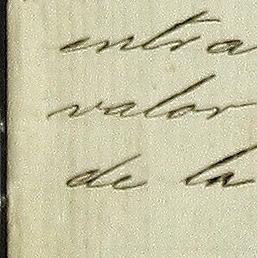 entra
valor
de la